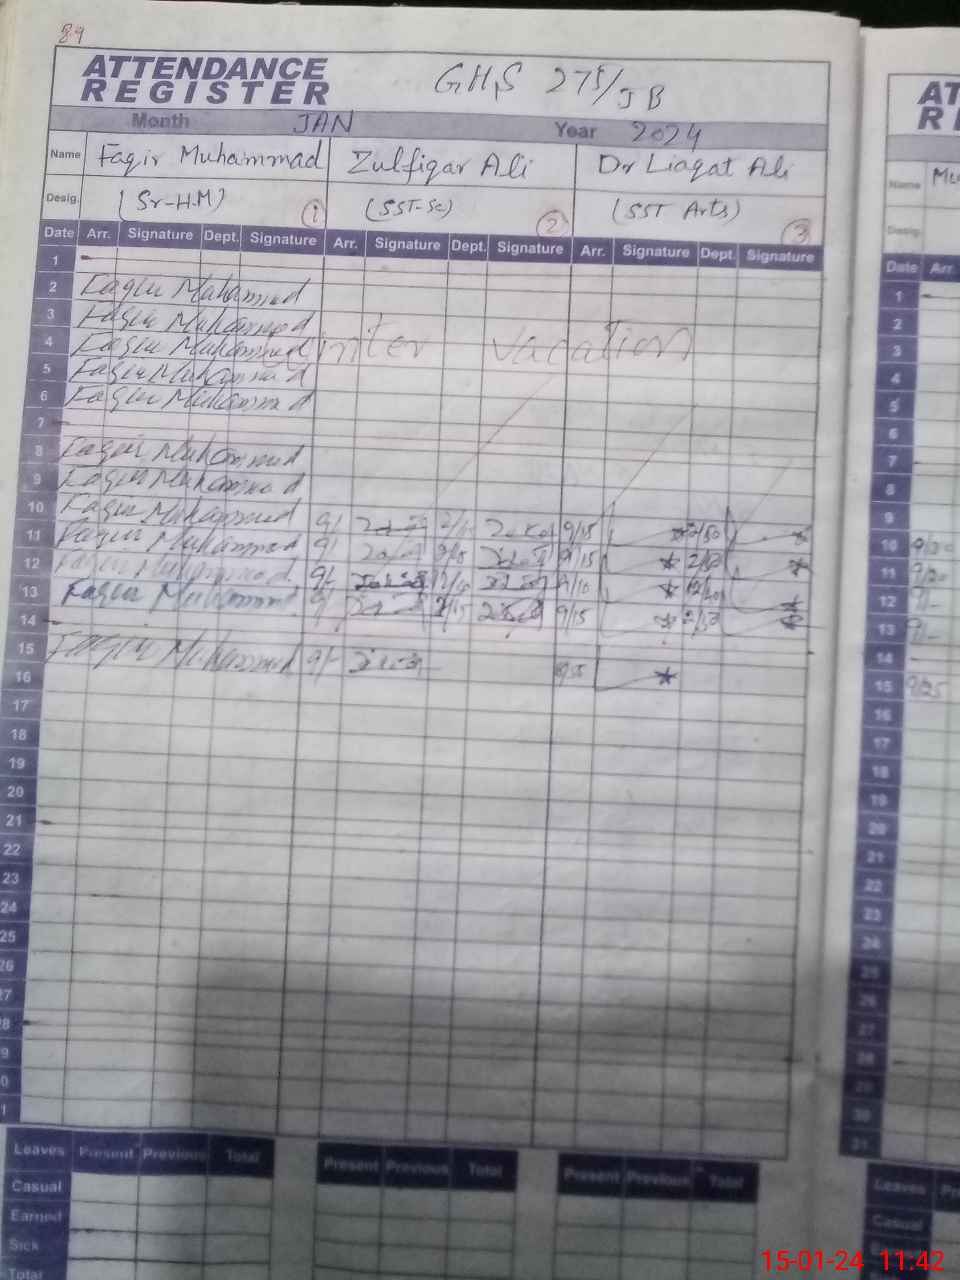 89
ATTENDANCE
REGISTER
GHS 275/JB
Month JAN Year 2024
Name Faqir Muhammad Zulfiqar Ali Dr Liaqat Ali
Desig. (Sr-H.M) 1 (SST-Sc) 2 (SST Arts) 3
Date Arr. Signature Dept. Signature Arr. Signature Dept. Signature Arr. Signature Dept. Signature
1
2 Faqir Muhammad
3 Faqir Muhammad
4 Faqir Muhammad Winter vacation
5 Faqir Muhammad
6 Faqir Muhammad
7
8 Faqir Muhammad
9 Faqir Muhammad
10 Faqir Muhammad 9/- 9/15
11 Faqir Muhammad 9/- 9/15
12 Faqir Muhammad 9/- 9/10
13 Faqir Muhammad 9/- 9/15
14
15 Faqir Muhammad 9/-
16
17
18
19
20
21
22
23
24
25
26
27
28
9
0
1
Leaves Present Previous Total Present Previous Total Present Previous Total
Casual
Earned
Sick
Total
AT
RE
Name Mu
Desig.
Date Arr.
1
2
3
4
5
6
7
8
9
10
11 9/20
12 9/-
13 9/-
14
15 9/25
16
17
18
19
20
21
22
23
24
25
26
27
28
29
30
31
Leaves Pr
Casual
15-01-24 11:42